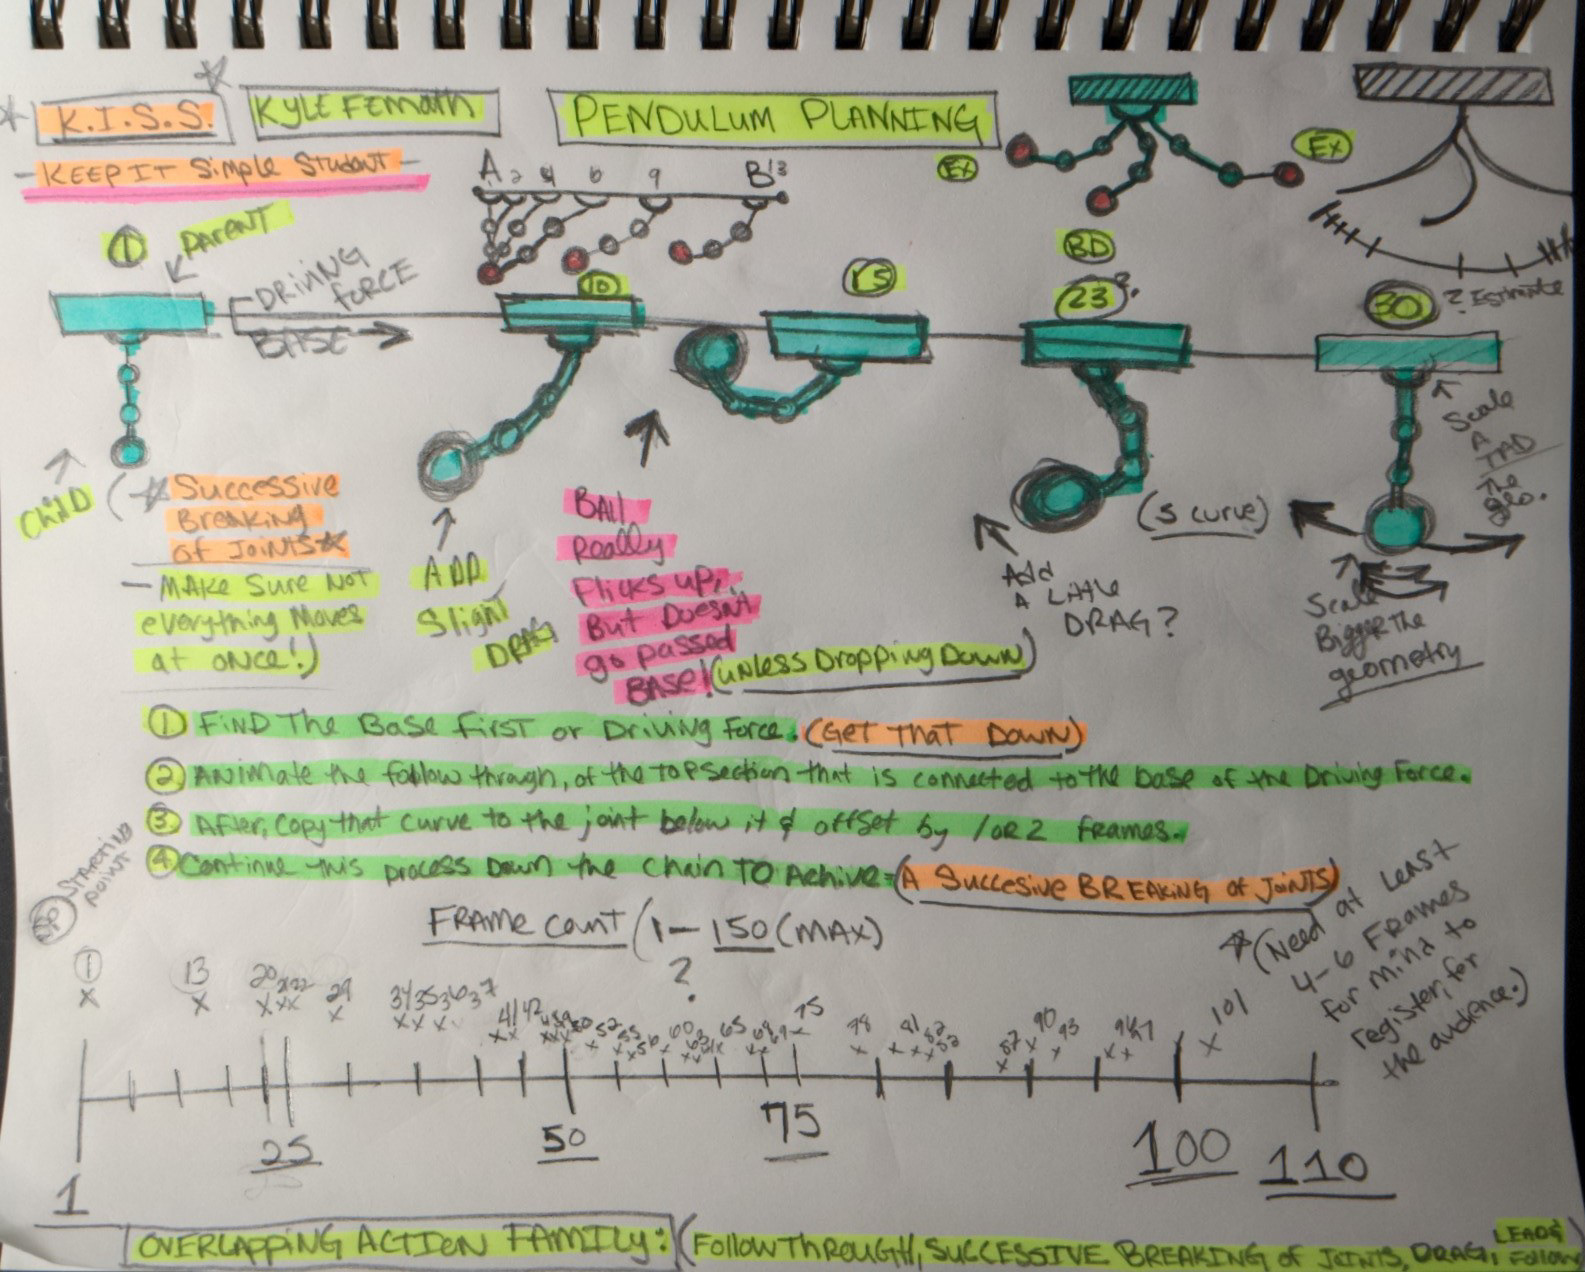 K.I.S.S.
KYLE FEMATH
PENDULUM PLANNING
- KEEP IT Simple Student -
A 2 4 6 9 B 13
EX
EX
1
PARENT
DRIVING
FORCE
BASE
10
15
BD
23?
30
? Estimate
Scale
A
TAD
The
geo.
Child
(Successive
Breaking
of Joints
- MAKE Sure Not
everything Moves
at once!)
ADD
Slight
DRAG
BAll
Really
Flicks up,
But Doesn't
go passed
BASE!
(unless Dropping Down)
(S curve)
Add
A Little
DRAG?
Scale
Bigger The
geometry
1 FIND The Base First or Driving Force. (Get That Down)
2 ANiMate the follow through, of the TOP section that is connected to the base of the Driving Force.
3 After, copy that curve to the joint below it & offset by 1 or 2 frames.
4 Continue this process Down the Chain TO Achive = (A Succesive BREAKING of JOINTS)
SP STARTING
POINT
FRAMe count (1 - 150 (MAX)
?
(Need at Least
4-6 FRAMES
for mind to
register, for
the audience.)
1 13 20 29 34 35 36 37 41 42 50 52 55 56 60 65 75 78 81 82 87 90 93 101
1 25 50 75 100 110
OVERLAPPING ACTION FAMILY: (FOLLOW THROUGH, SUCCESSIVE BREAKING OF JOINTS, DRAG, LEADS
Follow